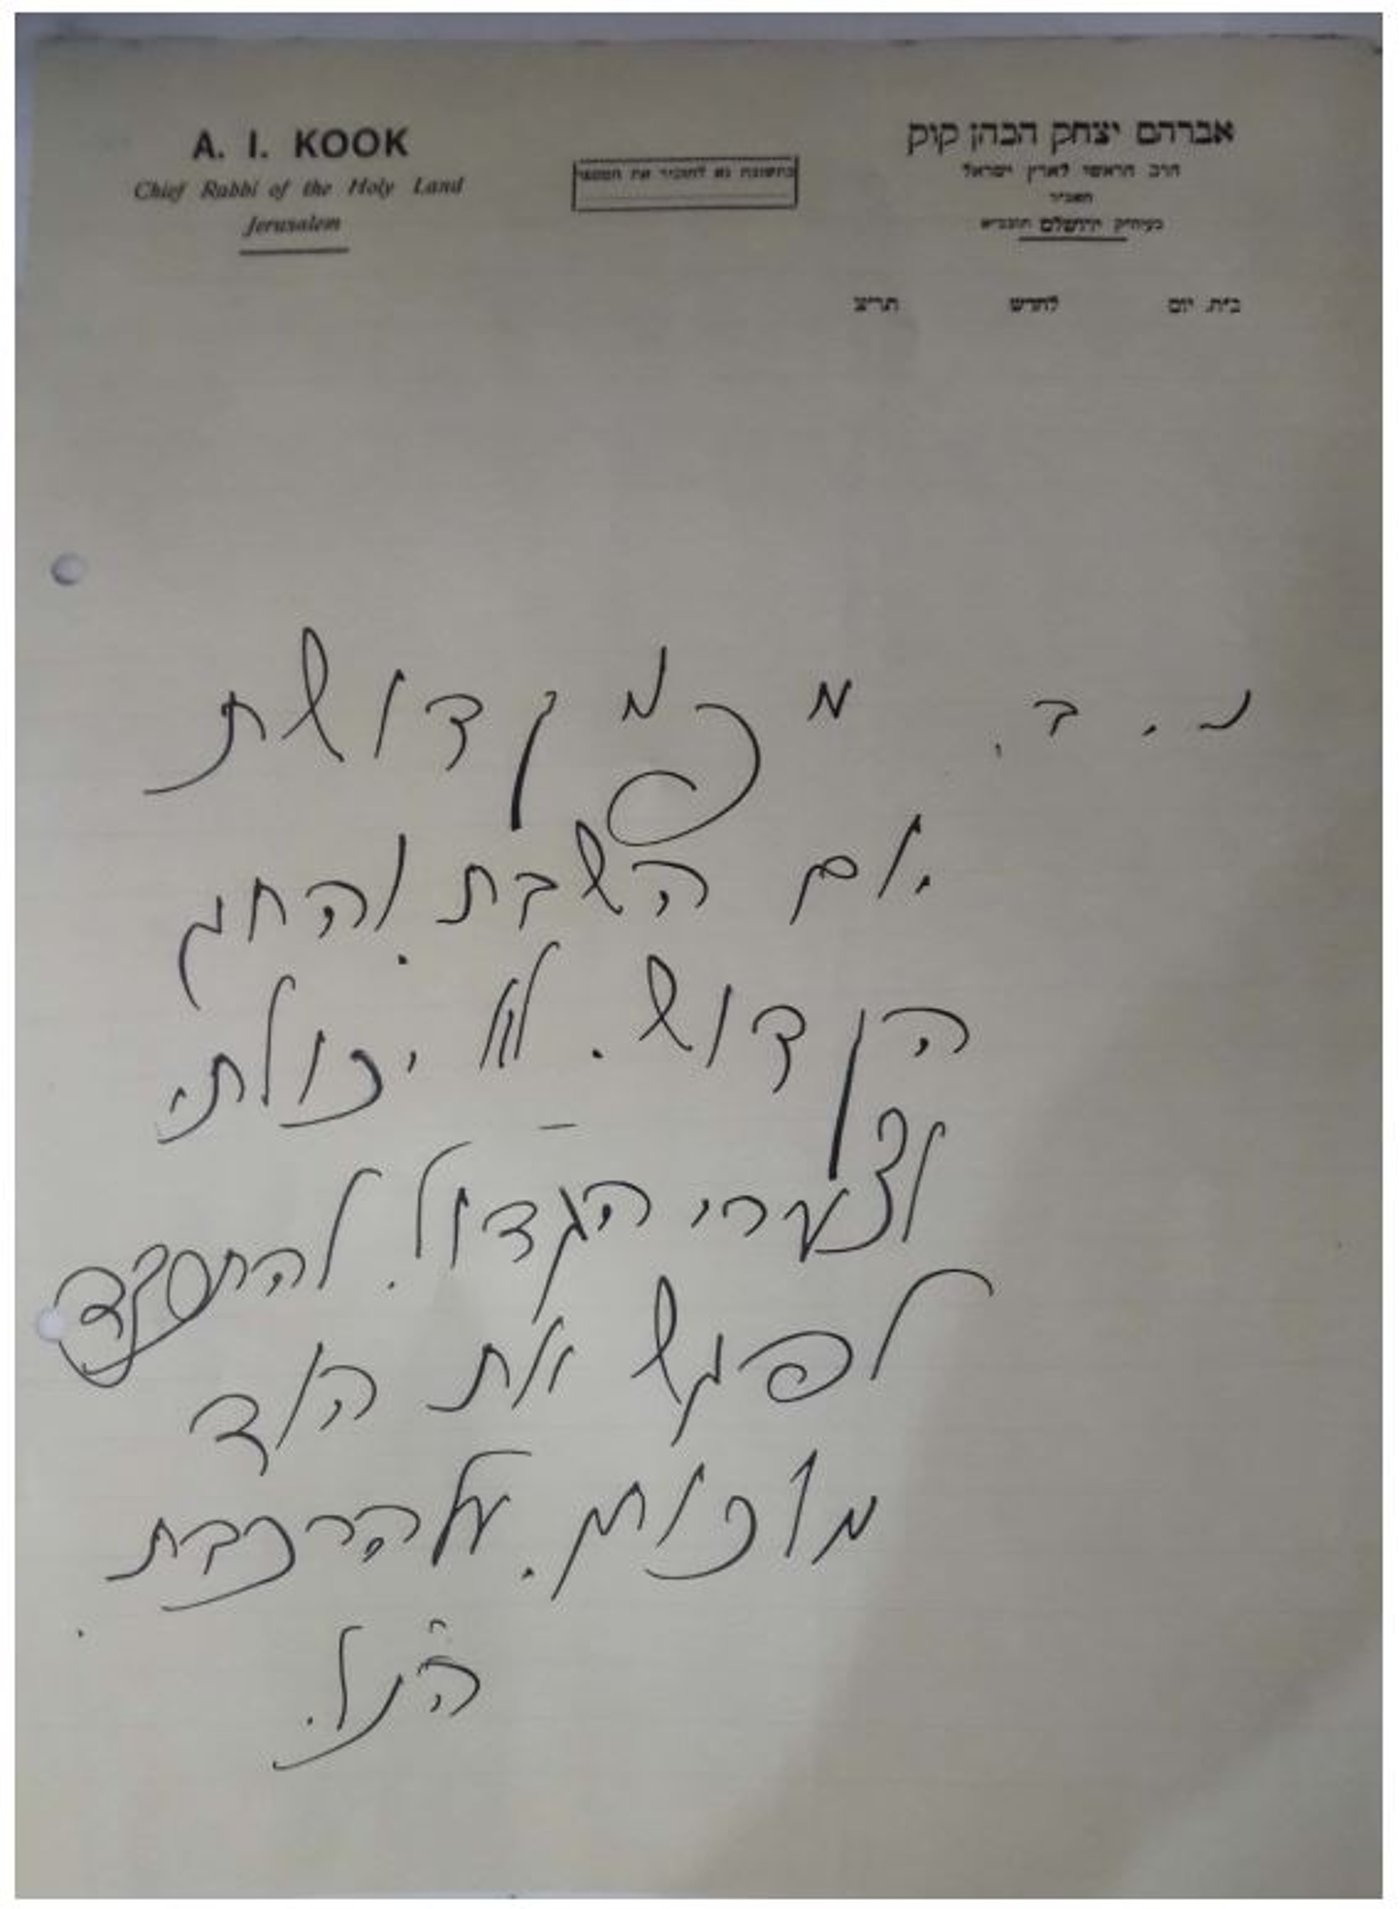 A. I. KOOK
Chief Rabbi of the Holy Land
Jerusalem
בתשובה נא להזכיר את המספר
אברהם יצחק הכהן קוק
הרב הראשי לארץ ישראל
בעיה״ק ירושלם תובב״א
ב״ה. יום לחדש תרצ
נ. ב. מפני קדושת
יום השבת והחג
הקדוש. לא יכולתי
לצערי הגדול. להתעתד
לפגש את הוד
מלכותו. על הרכבת
הנ״ל.